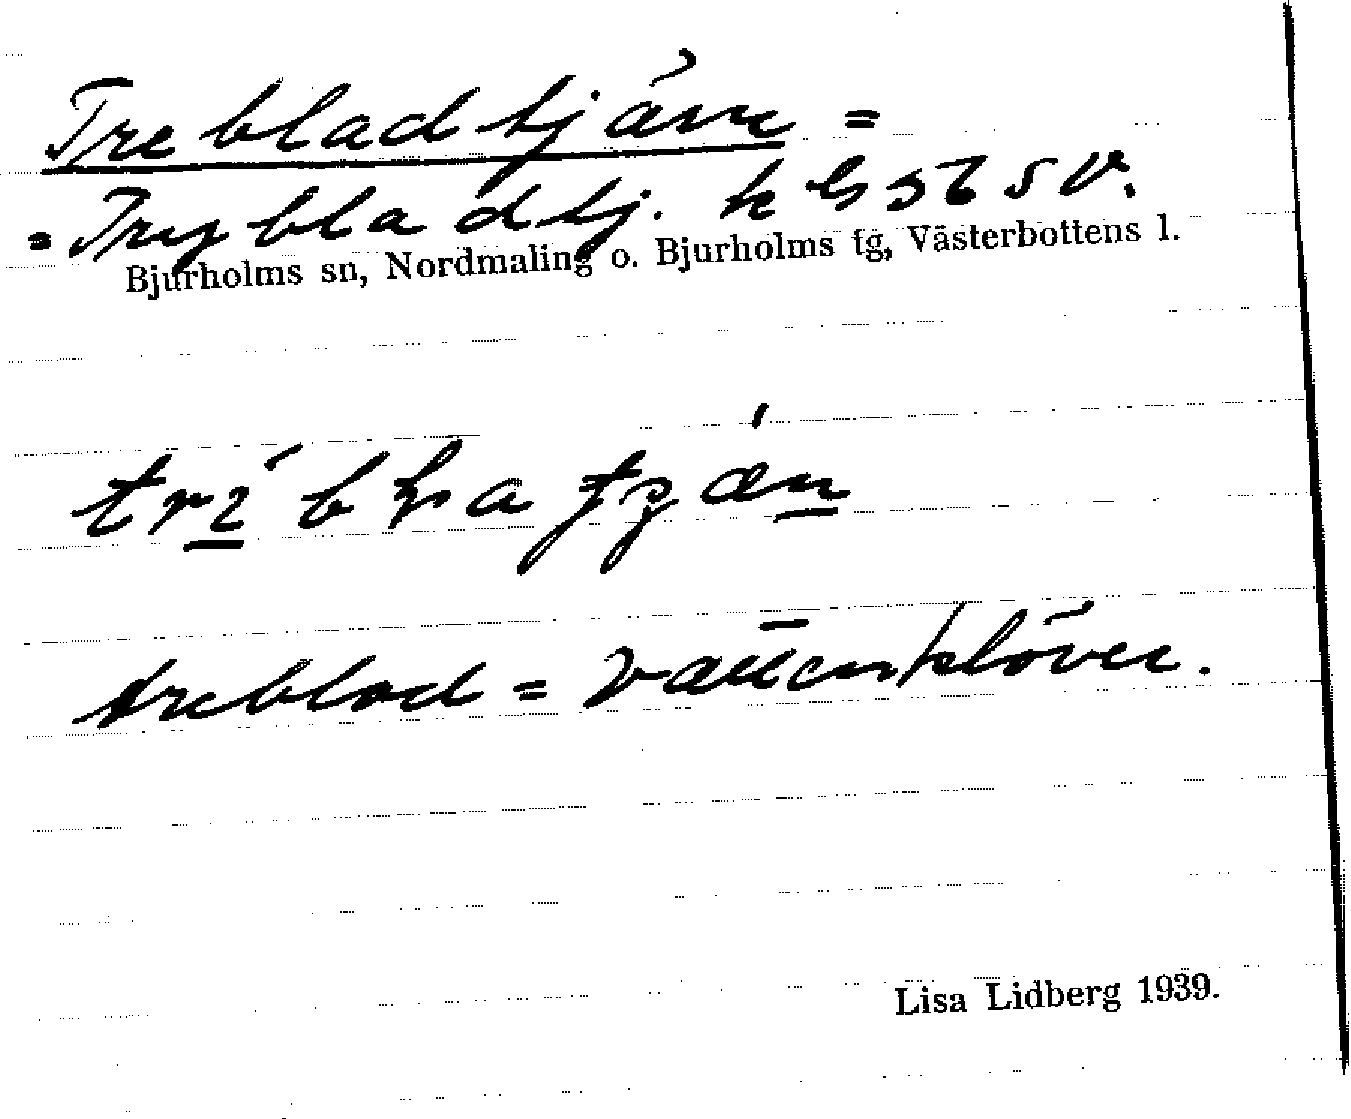 Trebladtjärn =
= Trybladtj. kbl 56 SV.
Bjurholms sn, Nordmaling o. Bjurholms tg, Västerbottens l.
treblad = Vattenklöver.
Lisa Lidberg 1939.